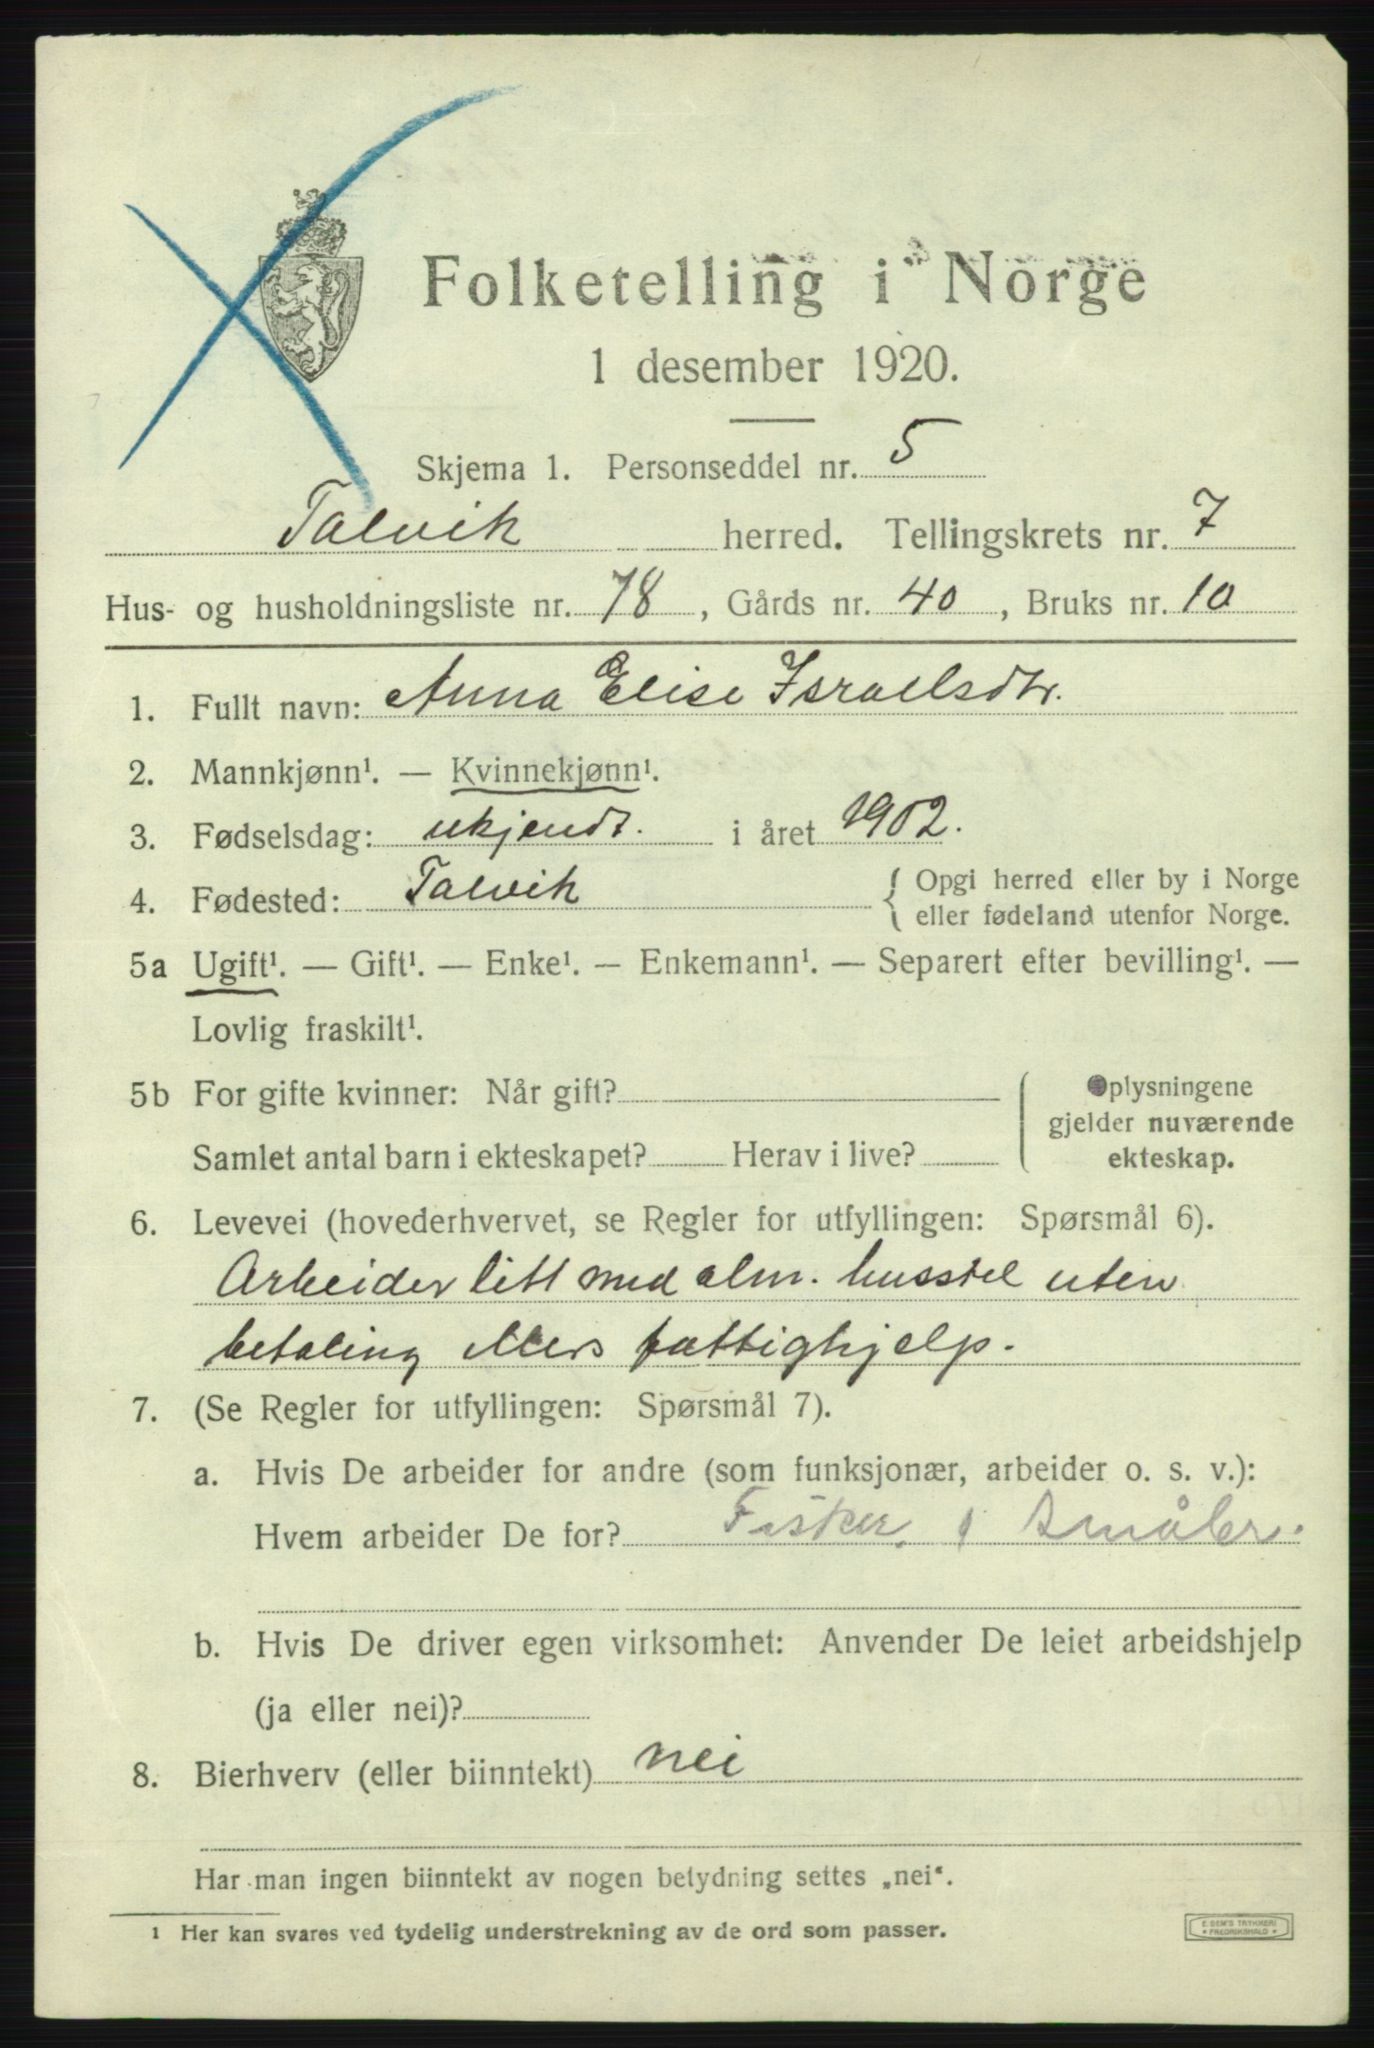 Folketelling i Norge
1 desember 1920.
Skjema 1. Personseddel nr. 5
Talvik herred. Tellingskrets nr. 7
Hus- og husholdningsliste nr. 78, Gårds nr. 40, Bruks nr. 10
1. Fullt navn: Anna Elise Israelsdtr.
2. Mannkjønn¹. — Kvinnekjønn¹.
3. Fødselsdag: ukjendt. i året 1902.
4. Fødested: Talvik { Opgi herred eller by i Norge
eller fødeland utenfor Norge.
5a Ugift¹. — Gift¹. — Enke¹. — Enkemann¹. — Separert efter bevilling¹. —
Lovlig fraskilt¹.
5b For gifte kvinner: Når gift?
Samlet antal barn i ekteskapet? Herav i live?
Oplysningene
gjelder nuværende
ekteskap.
6. Levevei (hovederhvervet, se Regler for utfyllingen: Spørsmål 6).
Arbeider litt med alm. husstel uten
betaling ellers fattighjelp.
7. (Se Regler for utfyllingen: Spørsmål 7).
a. Hvis De arbeider for andre (som funksjonær, arbeider o. s. v.):
Hvem arbeider De for? Fisker. Småbr.
b. Hvis De driver egen virksomhet: Anvender De leiet arbeidshjelp
(ja eller nei)?
8. Bierhverv (eller biinntekt) nei
Har man ingen biinntekt av nogen betydning settes „nei“.
¹ Her kan svares ved tydelig understrekning av de ord som passer.
E. SEM'S TRYKKERI
* FREDRIKSHALD *